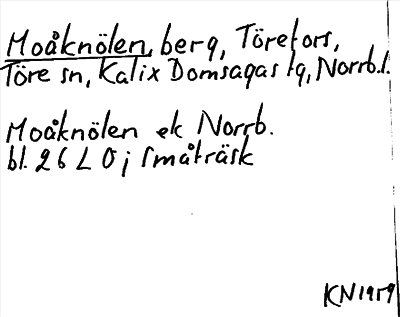 Moåknölen, berg, Törefors,
Töre sn, Kalix Domsagas tg, Norrb.l.
Moåknölen ek Norrb.
bl. 26 L 0 j Småträsk
KN 1959